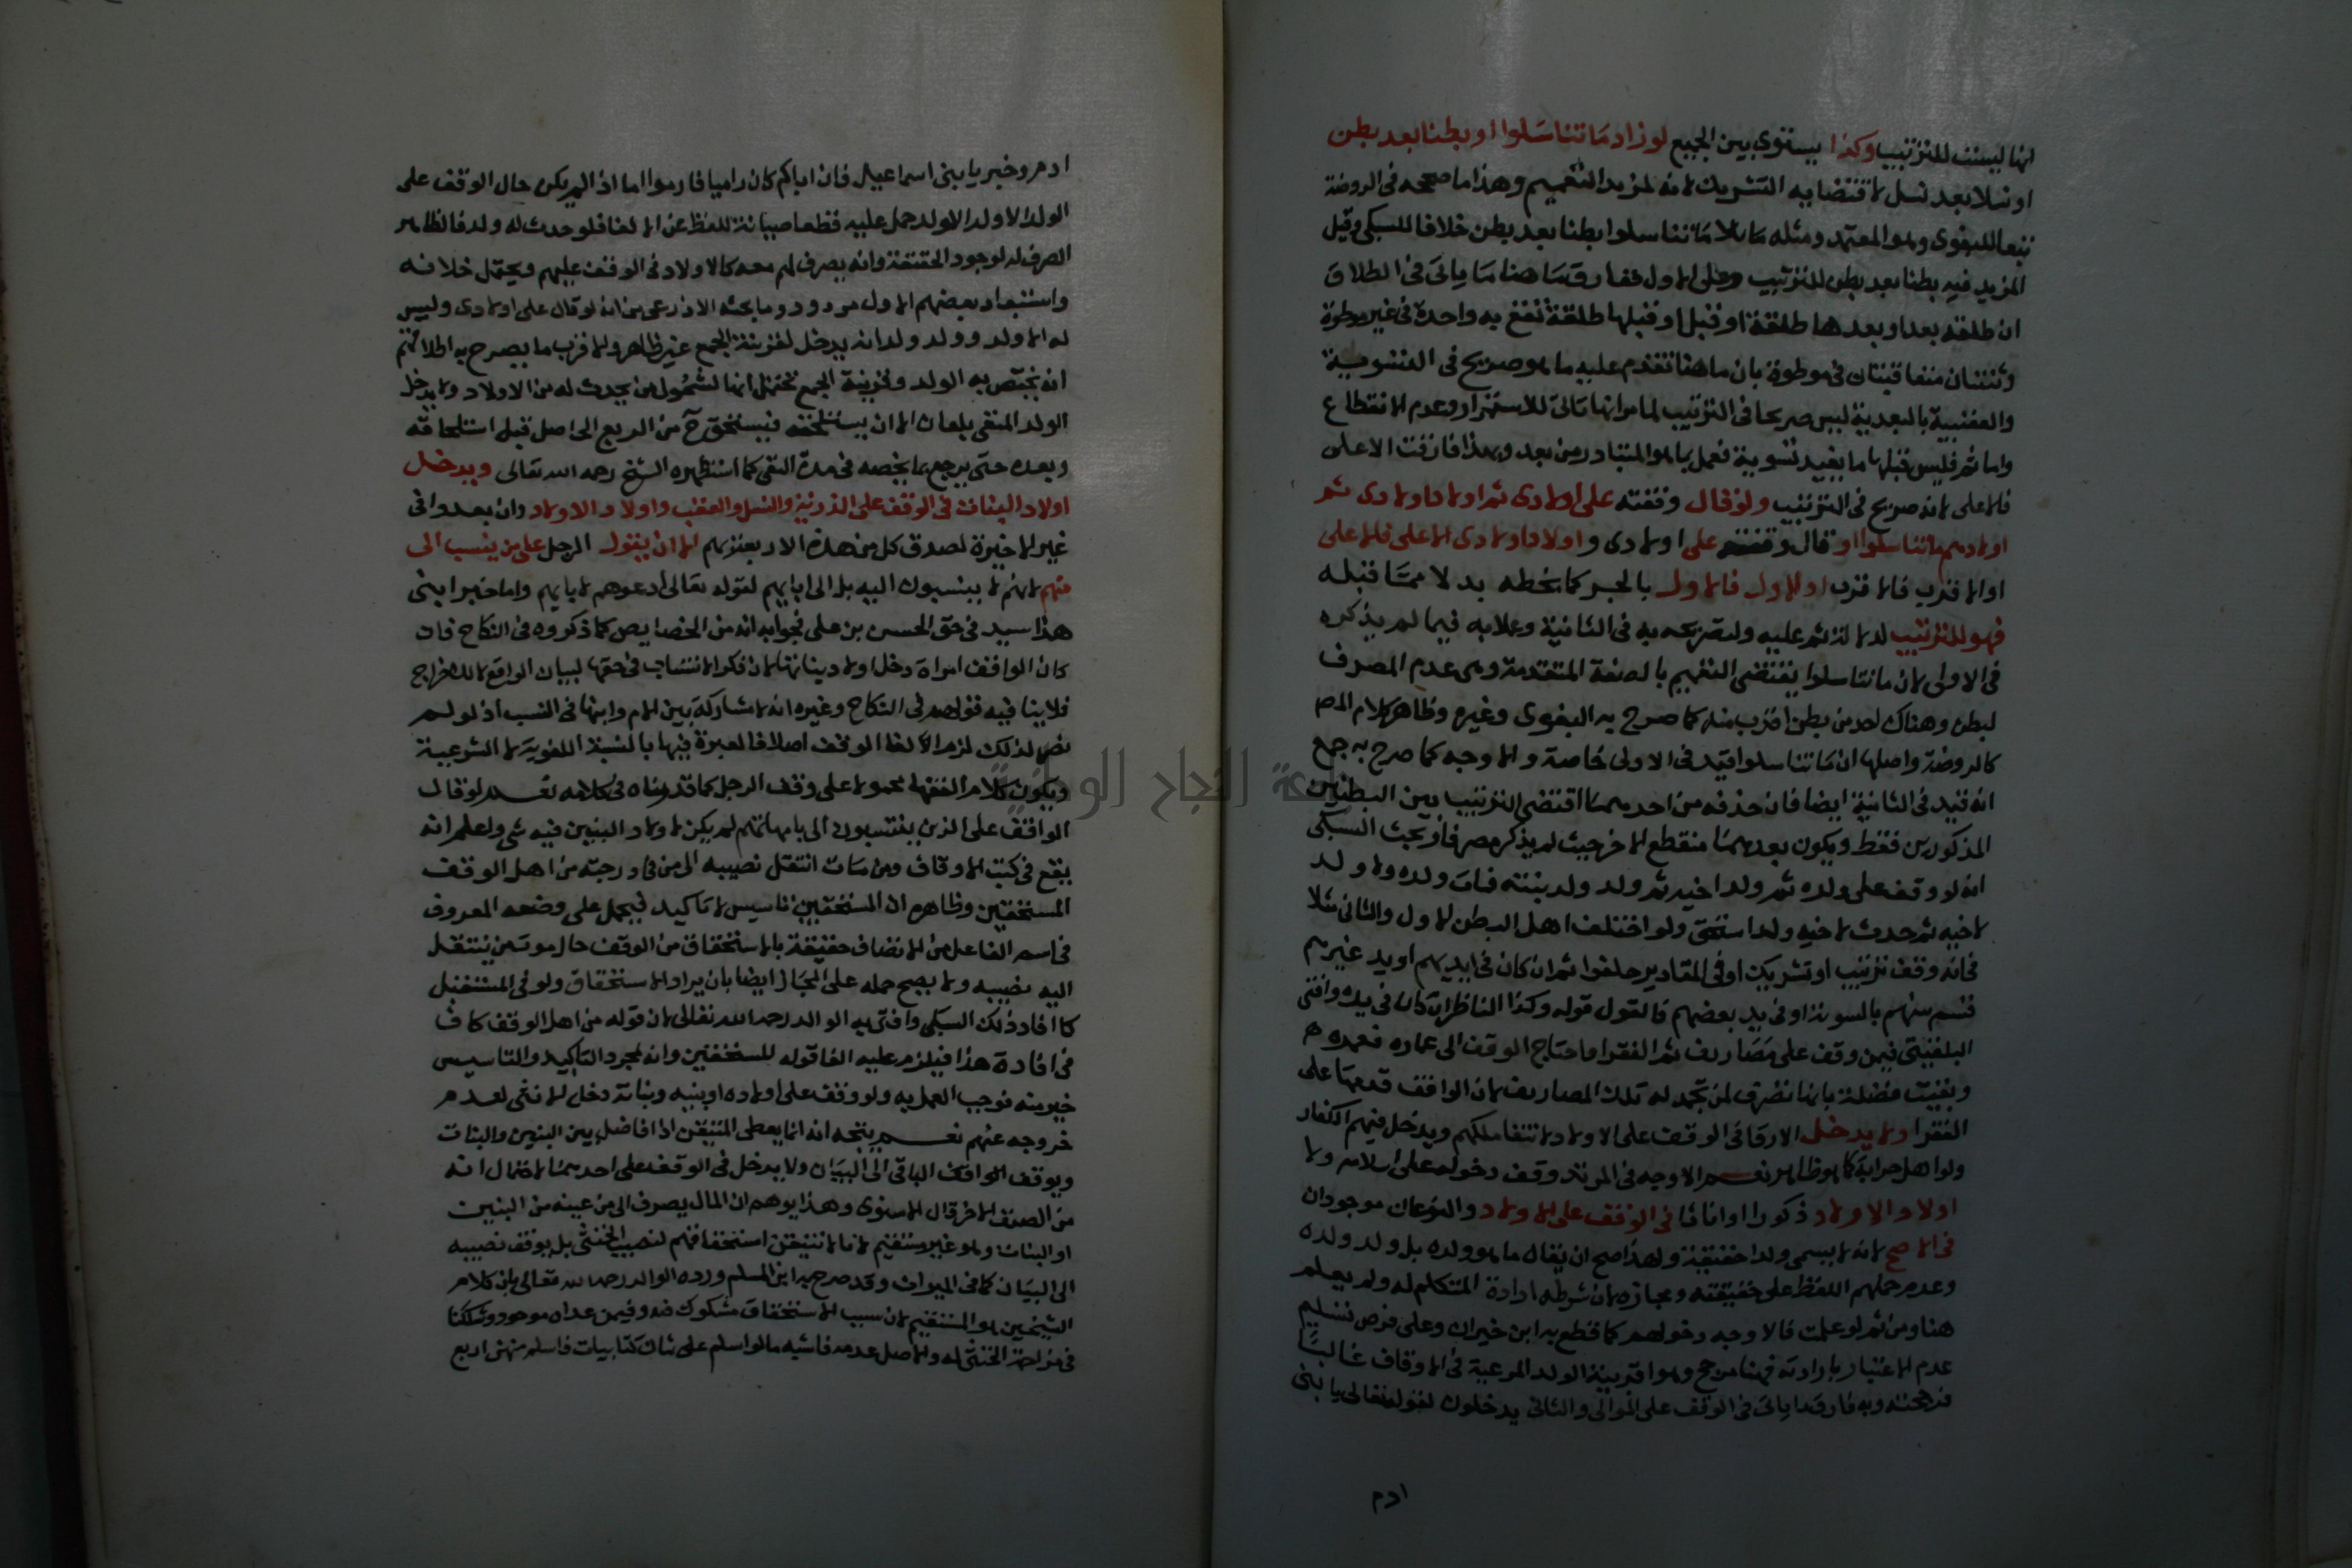 انها ليست للترتيب وكذا يستوى بين الجميع لو زاد ما تناسلوا او بطنا بعد بطن
او نسلا بعد نسل لاقتضايه التشريك لانه لمزيد التعميم وهذا ما صححه فى الروضة
تبعا للبغوى وهو المعتمد ومثله ما بلا ما تناسلوا بطنا بعد بطن خلافا للسبكى وقيل
المزيد فيه بطنا بعد بطن للترتيب وعلى الاول ففارق ما هنا ما ياتى فى الطلاق
ان طلقة بعد او بعدها طلقة او قبل او قبلها طلقة تقع به واحدة فى غير موطوة
وثنتان متعاقبتان فى موطوة بان ما هنا تقدم عليه ما هو صريح فى التسوية
والعقبه بالبعدية ليس صريحا فى الترتيب لما مر انها تاتى للاستمرار وعدم الانقطاع
واما ثم فليس قبلها ما يفيد تسوية فعمل بما هو المتبادر من بعد وبهذا فارقت الاعلى
فالاعلى لانه صريح فى الترتيب ولو قال وقفته على اولادى ثم اولاد اولادى ثم
اولادهم ما تناسلوا او قال وقفته على اولادى واولاد اولادى الاعلى فالاعلى
او الاقرب فالاقرب او الاول فالاول بالجر كما بخطه بدلا مما قبله
فهو للترتيب لدلالة ثم عليه ولتصريحه به فى الثانية وعملا به فيما لم يذكره
فى الاولى لان ما تناسلوا يقتضى التعميم بالصفة المتقدمة وهى عدم المصرف
لبطن وهناك احد من بطن اقرب منه كما صرح به البغوى وغيره وظاهر كلام المص
كالروضة واصلها ان ما تناسلوا قيد فى الاولى خاصة والاوجه كما صرح به جمع
انه قيد فى الثانية ايضا فان حذفه من احدهما اقتضى الترتيب بين البطنين
المذكورين فقط ويكون بعدهما منقطع الاخر حيث لم يذكر مصرفا وبحث السبكى
انه لو وقف على ولده ثم ولد اخيه ثم ولد ولد بنته فمات ولده ولا ولد
لاخيه ثم حدث لاخيه ولد استحق ولو اختلف اهل البطن الاول والثانى مثلا
فى انه وقف ترتيب او تشريك او فى المقادير حلفوا ثم ان كان فى ايديهم او يد غيرهم
قسم بينهم بالسوية او فى يد بعضهم فالقول قوله وكذا الناظر ان كان فى يده وافتى
البلقينى فيمن وقف على مصارف ثم الفقرا فاحتاج الوقف الى عماره فعمره
وبقيت فضلة بانها تصرف لمن تجمد له تلك المصاريف لان الواقف قدمها على
الفقرا ولا يدخل الارقا فى الوقف على الاولاد لانتفا ملكهم ويدخل فيهم الكفار
ولو اهل حرابة كما هو ظاهر نعم الاوجه فى المرتد وقف دخوله على اسلامه ولا
اولاد الاولاد ذكورا او اناثا فى الوقف على الاولاد والنوعان موجودان
فى الاصح لانه لا يسمى ولدا حقيقة ولهذا صح ان يقال ما هو ولده بل ولد ولده
وعدم حملهم اللفظ على حقيقته ومجازه لان شرطه ارادة المتكلم له ولم يعلم
هنا ومن ثم لو علمت فالاوجه دخولهم كما قطع به ابن خيران وعلى فرض تسليم
عدم الاعتبار بارادته فهنا مرجح وهو اقربية الولد المرعية فى الاوقاف غالبا
فرجحته وبه فارق ما ياتى فى الوقف على الموالى والثانى يدخلون لقوله تعالى يا بنى
ادم
ادم وخبر يا بنى اسماعيل فان اباكم كان راميا فارموا اما اذا لم يكن حال الوقف على
الولد الا ولد الولد حمل عليه قطعا صيانة للفظ عن الالغا فلو حدث له ولد فالظاهر
الصرف له لوجود الحقيقة وانه يصرف لهم معه كالاولاد فى الوقف عليهم ويحتمل خلافه
واستبعاد بعضهم الاول مردود وما بحثه الاذرعى من انه لو قال على اولادى وليس
له الا ولد وولد ولد انه يدخل لقرينة الجمع غير ظاهر والاقرب ما يصرح به اطلاقهم
انه يختص به الولد وقرينة الجمع تحتمل انها لشمول من يحدث له من الاولاد ولا يدخل
الولد المنفى بلعان الا ان يستلحقه فيستحق ح من الريع الحاصل قبل استلحاقه
وبعده حتى يرجع بما يخصه فى مدة النفى كما استظهره الشيخ رحمه الله تعالى ويدخل
اولاد البنات فى الوقف على الذرية والنسل والعقب واولاد الاولاد وان بعدوا فى
غير الاخيرة لصدق كل من هذه الاربعة بهم الا ان يقول الرجل على من ينسب الى
منهم لانهم لا ينسبون اليه بل الى ابايهم لقوله تعالى ادعوهم لابايهم واما خبر ابنى
هذا سيد فى حق الحسن بن على فجوابه انه من الخصايص كما ذكروه فى النكاح فان
كان الواقف امراة دخل اولاد بناتها لان ذكر الانتساب فى حقها لبيان الواقع لا للاخراج
فلا ينافيه قولهم فى النكاح وغيره انه لا مشاركة بين الام وابنها فى النسب اذ لو لم
نقل لذلك لزم الالغا الوقف اصلا فالعبرة فيها بالنسبة اللغوية لا الشرعية
ويكون كلام الفقها محمولا على وقف الرجل كما قدرناه فى كلامه نعم لو قال
الواقف على الذين ينتسبون الى بامهاتهم لم يكن لاولاد البنين فيه شى واعلم انه
يقع فى كتب الاوقاف ومن مات انتقل نصيبه الى من فى درجته من اهل الوقف
المستحقين وظاهره ان المستحقين تاسيس لا تاكيد فيحمل على وضعه المعروف
فى اسم الفاعل من الاتصاف حقيقة بالاستحقاق من الوقف حال موت من ينتقل
اليه نصيبه ولا يصح حمله على المجاز ايضا بان يراد الاستحقاق ولو فى المستقبل
كما افاد ذلك السبكى وافتى به الوالد رحمه الله تعالى لان قوله من اهل الوقف كاف
فى افادة هذا فيلزم عليه الغا قوله للمستحقين وانه لمجرد التاكيد والتاسيس
خير منه فوجب العمل به ولو وقف على اولاده او بنيه وبناته دخل الخنثى لعدم
خروجه عنهم نعم يتجه انه انما يعطى المتيقن اذا فاضل بين البنين والبنات
ويوقف الباقى الى البيان ولا يدخل فى الوقف على احدهما لاحتمال انه
من الصنف الاخر قال الاسنوى وهذا يوهم ان المال يصرف الى من عينه من البنين
او البنات وهو غير مستقيم لانا لا نتيقن استحقاقهم لنصيب الخنثى بل يوقف نصيبه
الى البيان كما فى الميراث وقد صرح به ابن المسلم ورده الوالد رحمه الله تعالى بان كلام
الشيخين هو المستقيم لان سبب الاستحقاق مشكوك فيه وفيمن عداه موجود وشككنا
فى مزاحمة الخنثى له والاصل عدمه فاشبه ما لو اسلم على ثمان كتابيات فاسلم منهن اربع